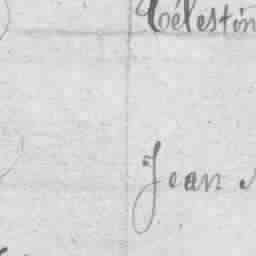 Célestin
Jean